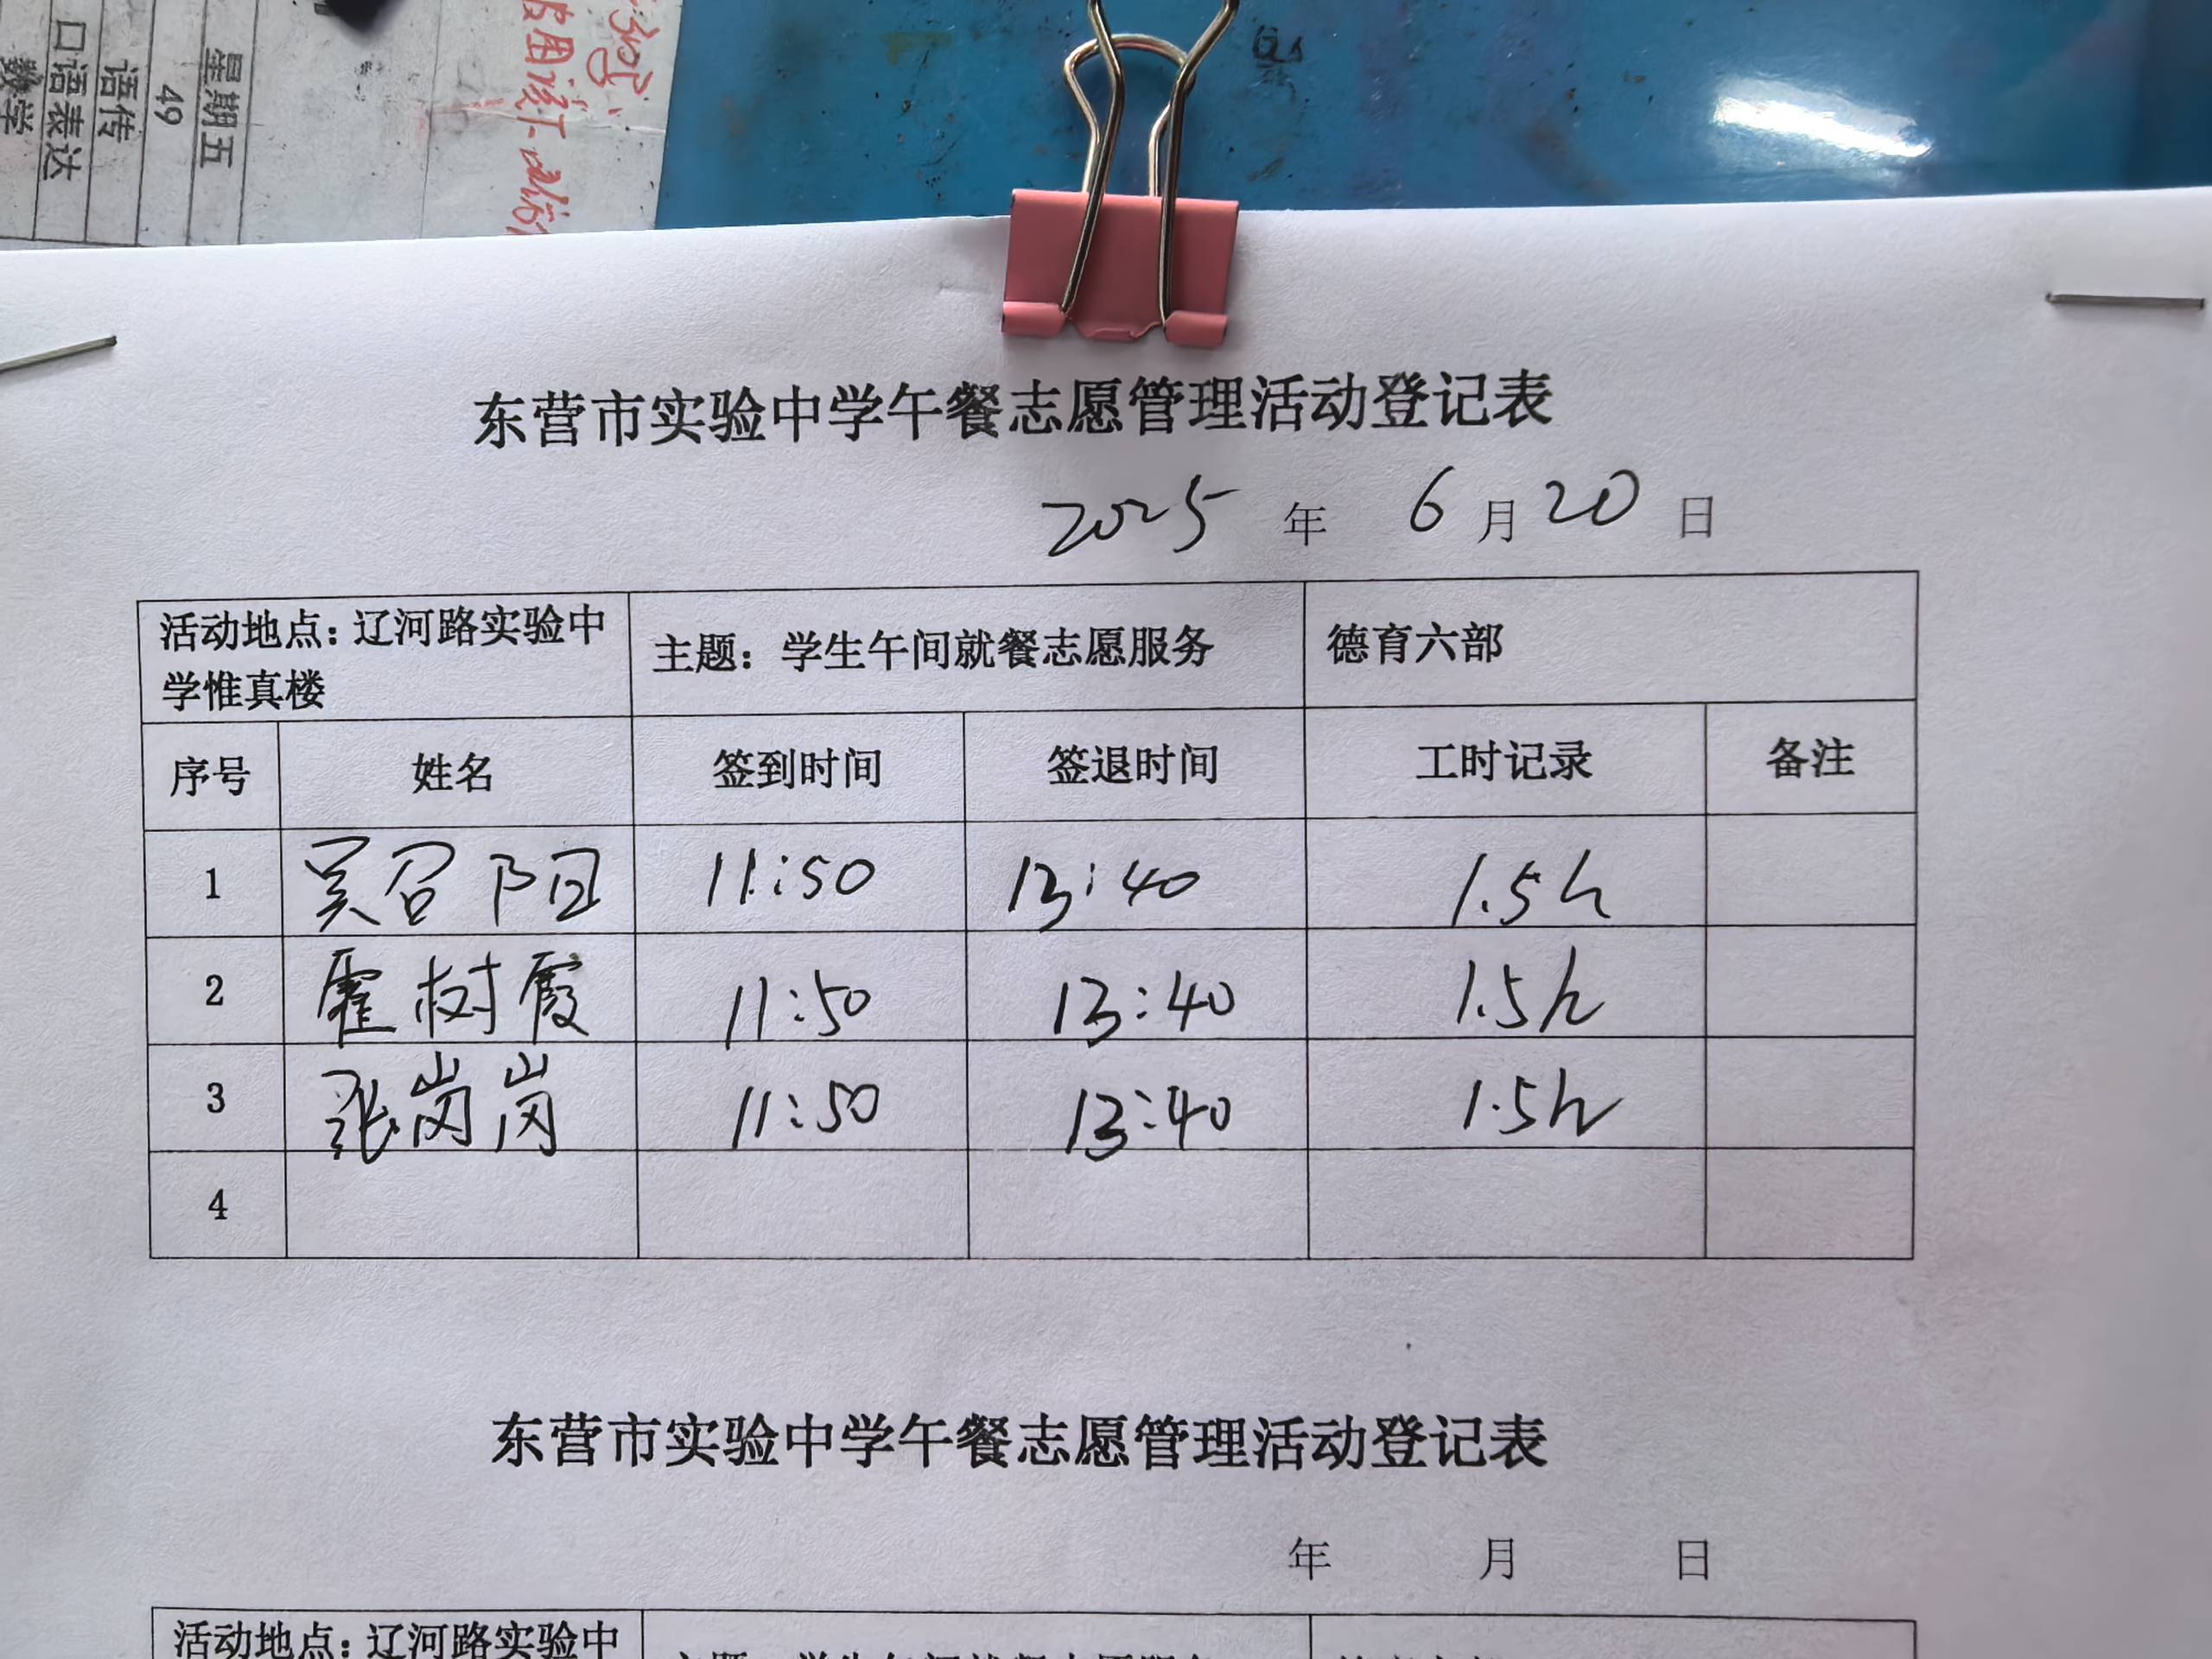 星期五
49
语传
口语表达
数学
东营市实验中学午餐志愿管理活动登记表
2025 年 6 月 20 日
活动地点：辽河路实验中学惟真楼 主题：学生午间就餐志愿服务 德育六部
序号 姓名 签到时间 签退时间 工时记录 备注
1 吴召阳 11:50 13:40 1.5h
2 霍树霞 11:50 13:40 1.5h
3 张岗岗 11:50 13:40 1.5h
4
东营市实验中学午餐志愿管理活动登记表
年 月 日
活动地点：辽河路实验中